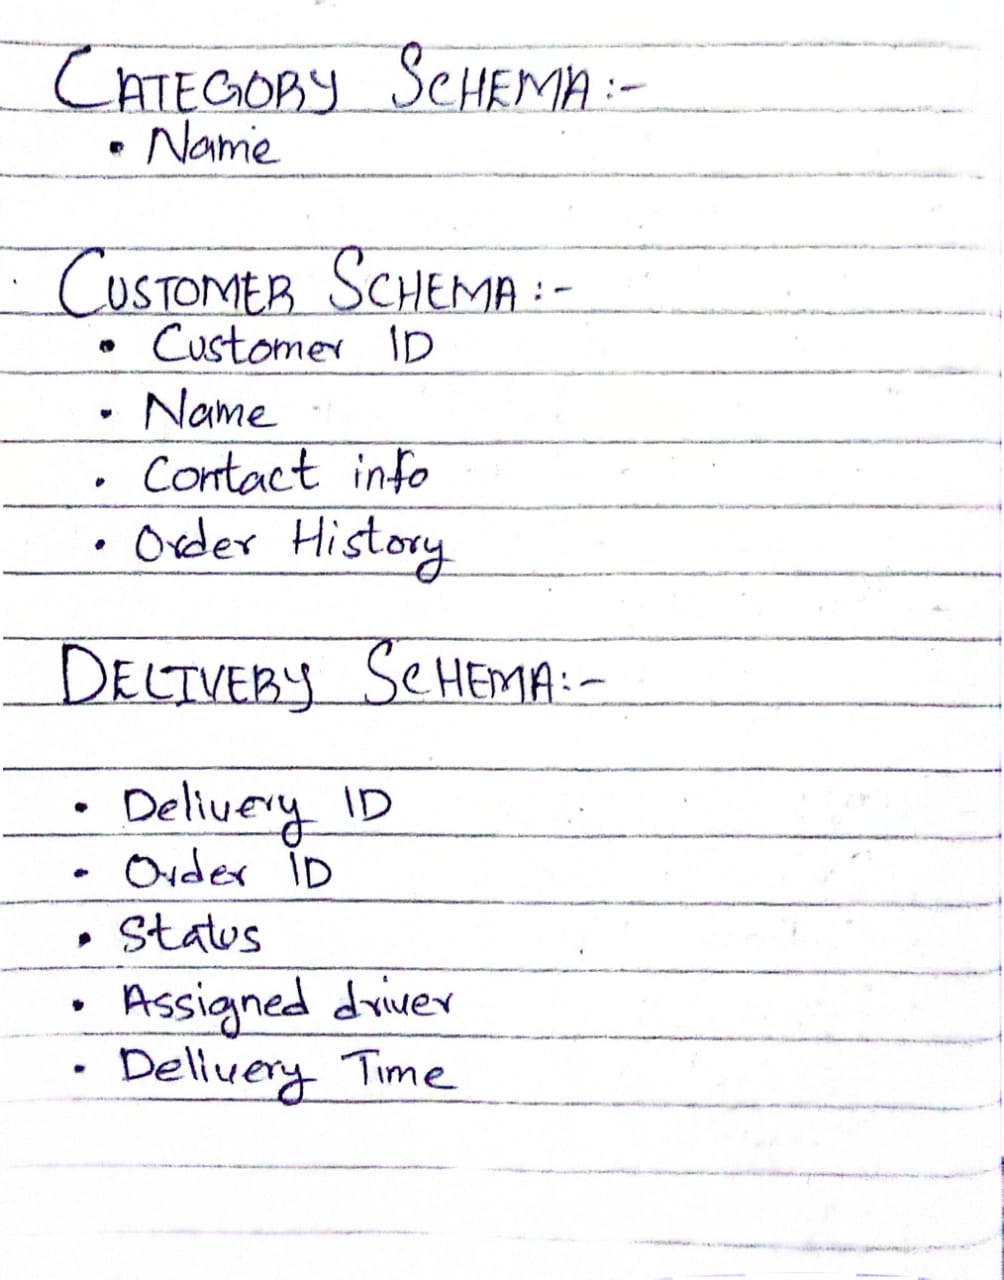 CATEGORY SCHEMA :-
• Name
CUSTOMER SCHEMA :-
• Customer ID
• Name
• Contact info
• Order History
DELIVERY SCHEMA :-
• Delivery ID
• Order ID
• Status
• Assigned driver
• Delivery Time